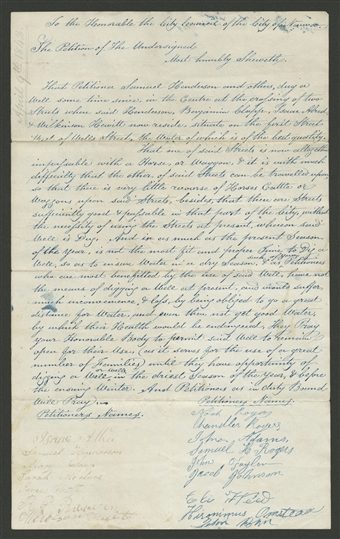 To the Honorable the City Council of the City of
The Petition of The Undersigned
Most humbly Sheweth.
That Petitioner Samuel Henderson and others, dug a
Well some time since, in the Centre at the crossing of two
Streets when said Henderson, Benjamin
& Wilkinson Hewitt now reside, situate on the first Street
West of Wells Street, the Water of which is of the best quality.
That one of said Streets is now altogether
impassable with a Horse, or Waggon, & it is with much
difficulty that the other of said Streets can be travelled upon
so that there is very little recourse of Horses Cattle or
Waggons upon said Streets, besides, that there are Streets
sufficiently good & passable in that part of the City, without
the necessity of using the Streets at present, whereon said
Well is Dug. And in as much as the present Season
of the year, is not the most fit and proper Time to Dig a
Well, so as to ensure Water in a dry Season, & as Petitioners
who are most benefitted by the use of said Well, have not
the means of digging a Well at present, and wants suffer
much inconvenience, & loss, by being obliged to go a great
distance for Water, and even then not get good Water,
by which their Health would be endangered, they Pray
your Honorable Body to permit said Well to remain
open for their Use, (as it serves for the use of a great
number of families) until they have an opportunity of
digging a Well, in the driest Season of the Year, & before
the ensuing Winter. And Petitioners as in duty Bound
Will Pray
Petitioners Names.
Samuel Henderson
Sarah
Petitioners Names.
Rogers
Chandler Rogers
Adams
Samuel Rogers
John Taylor
Jacob Johnson
Hieronimus
John